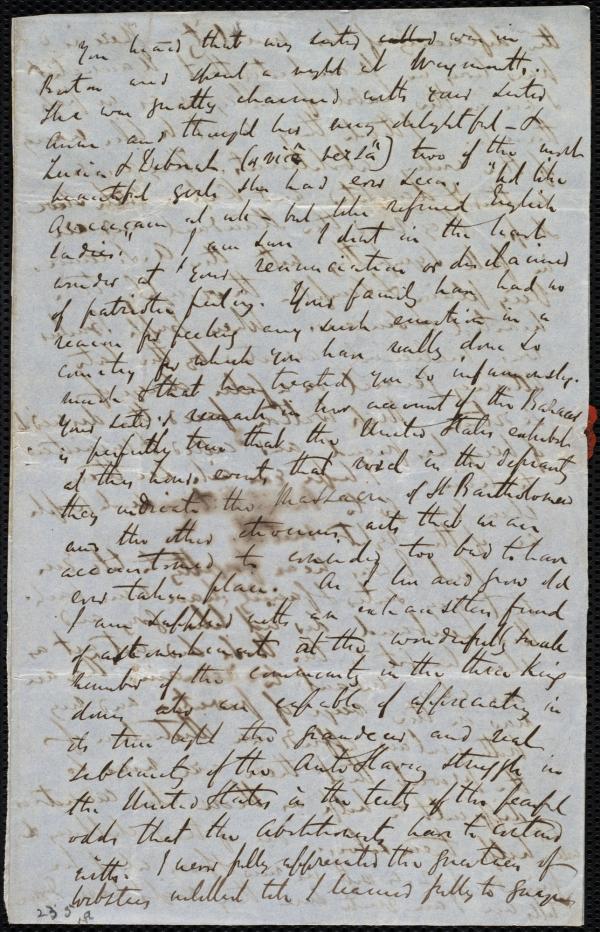 You heard that my sister was in
Boston and spent a night at Weymouth.
She was greatly charmed with your sister
Anne and thought her very delightful – &
Lucia & Deborah (or vice versa) two of the most
beautiful girls she had ever seen. "not like
American at all – but like refined English
ladies." I am sure I dont in the least
wonder at your renunciation or disclaimer
of patriotic feeling. Your family have had no
reason for feeling any such emotion in a
country for which you have really done so
much & that has treated you so infamously.
Your sister's remark in her account of the Bazaar
is perfectly true that the United States exhibit
at this hour events that in the
they indicate the Massacre of St Bartholomew
and the other atrocious acts that we are
accustomed to consider too bad to have
ever taken place. As I live and grow old
I am supplied with an exhaustless fund
of astonishment at the wonderfully small
number of the community in the three King
doms who are capable of appreciating in
its true light the grandeur and real
sublimity of the Anti Slavery struggle in
the United States in the teeth of the fearful
odds that the Abolitionists have to contend
with. I never fully appreciated the greatness of
Websters till I learned fully to
23